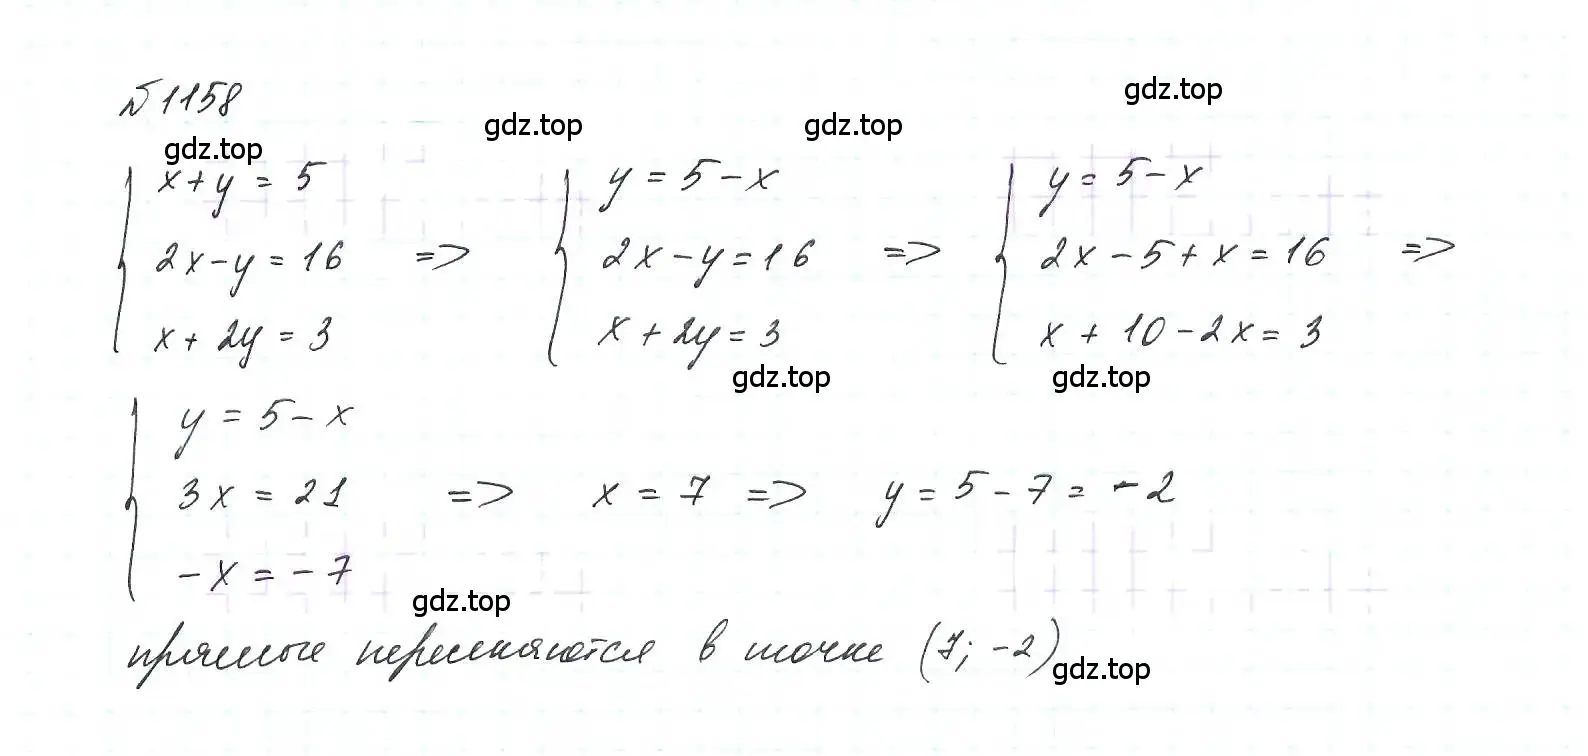 №1158
gdz.top
gdz.top gdz.top
gdz.top
x+y=5
2x-y=16 =>
x+2y=3
y=5-x
2x-y=16 =>
x+2y=3
y=5-x
2x-5+x=16 =>
x+10-2x=3
gdz.top gdz.top
y=5-x
3x=21 => x=7 => y=5-7=-2
-x=-7
gdz.top
прямые пересекаются в точке (7; -2)
gdz.top